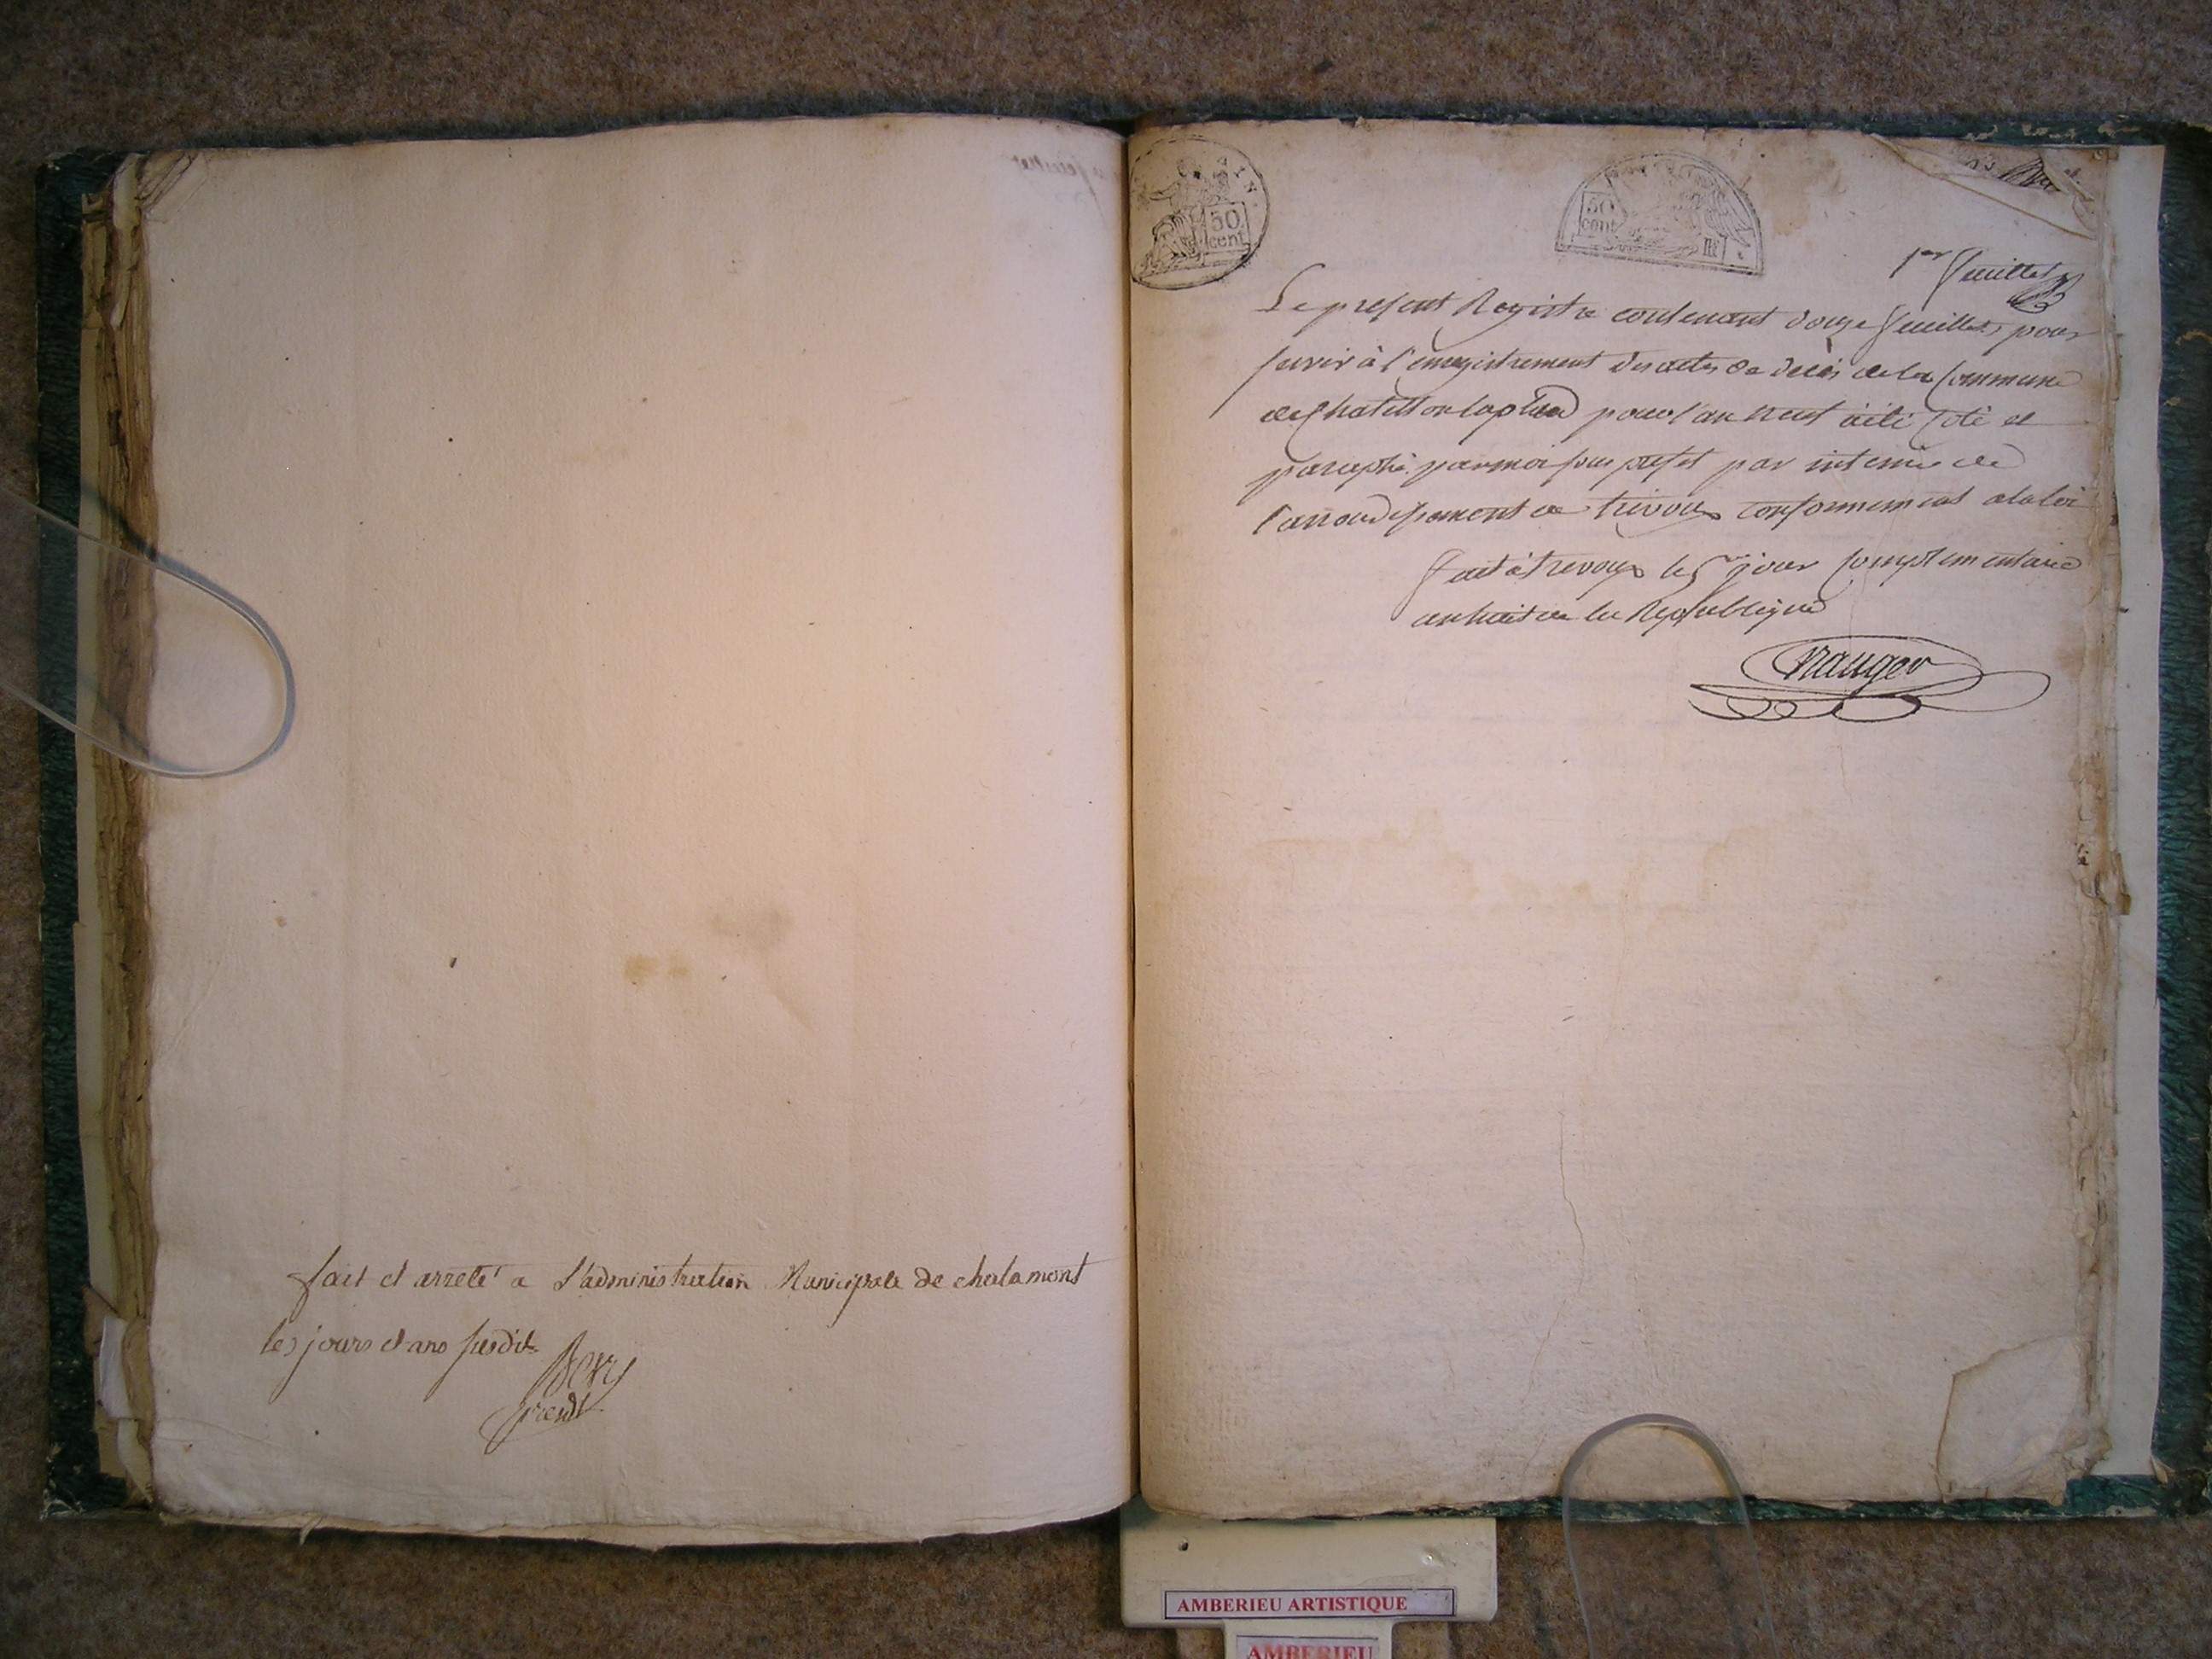 fait et arreté a l'administration Municipale de chalamont
les jours et ans susdit
presdt
50
cent
50
cent
1er feuillet
Le present Registre contenant douze feuillets pour
servir à l'enregistrement des actes de décès de la Commune
de Chatillon la palud pour l'an neuf à été coté et
paraphé par moi sous prefet par interim de
l'arrondissement de trevoux conformement a la loi
fait à trevoux le 5e jour complementaire
an huit de la Republique
AMBERIEU ARTISTIQUE
AMBERIEU